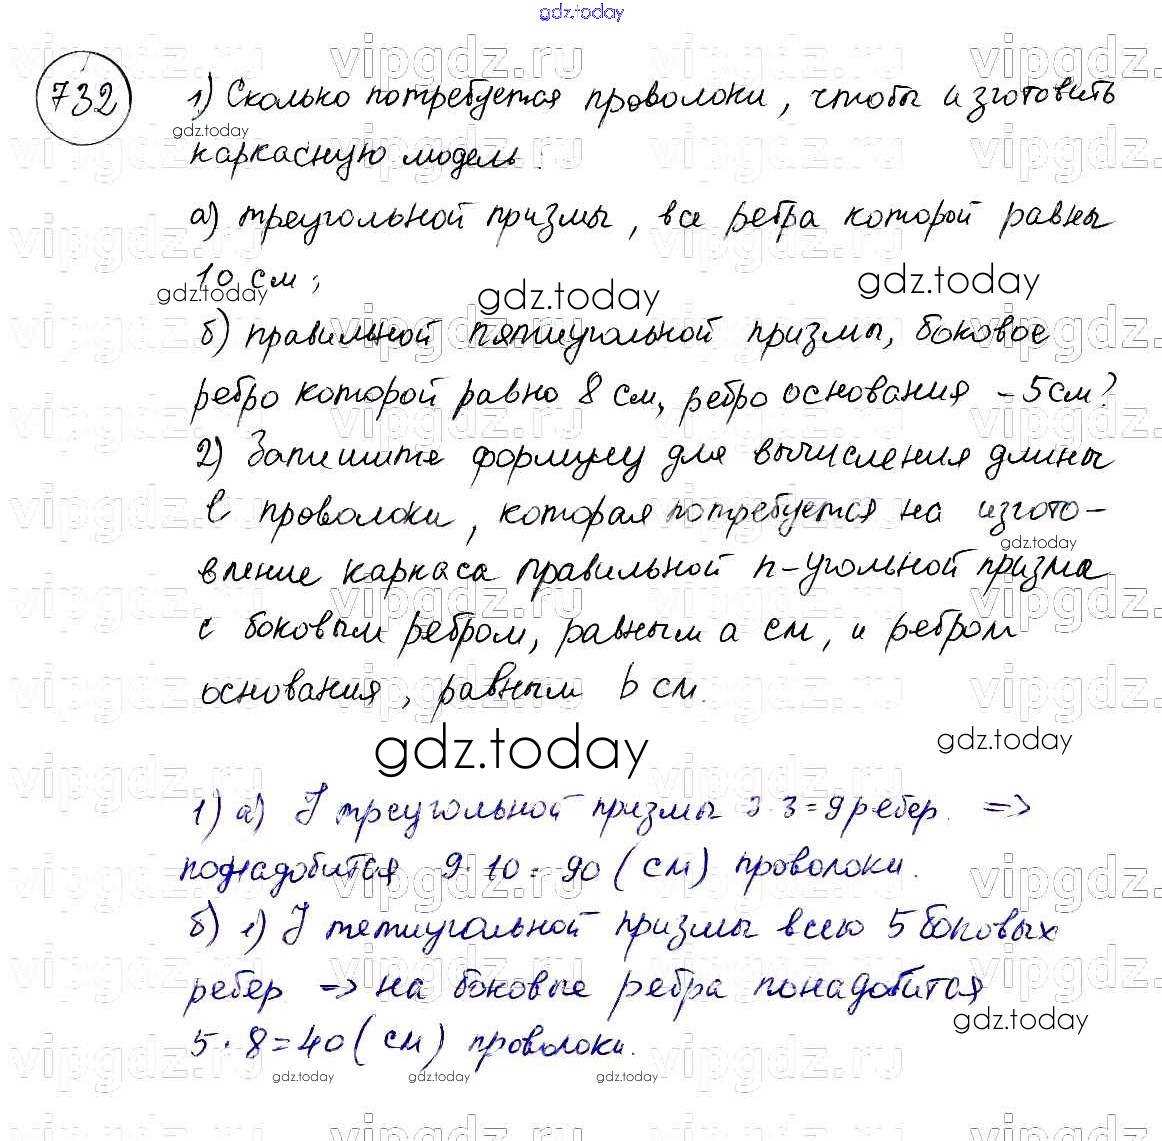 gdz.today
732
1) Сколько потребуется проволоки, чтобы изготовить
gdz.today
каркасную модель:
а) треугольной призмы, все ребра которой равны
10 см;
gdz.today gdz.today gdz.today
б) правильной пятиугольной призмы, боковое
ребро которой равно 8 см, ребро основания - 5см?
2) Запишите формулу для вычисления длины
l проволоки, которая потребуется на изгото-
gdz.today
вление каркаса правильной n-угольной призма
с боковым ребром, равным a см, и ребром
основания, равным b см.
gdz.today gdz.today
1) а) У треугольной призмы 3·3=9 ребер. =>
понадобится 9·10=90 (см) проволоки.
б) 1) У пятиугольной призмы всего 5 боковых
ребер => на боковые ребра понадобится
gdz.today
5·8=40 (см) проволоки.
gdz.today gdz.today gdz.today